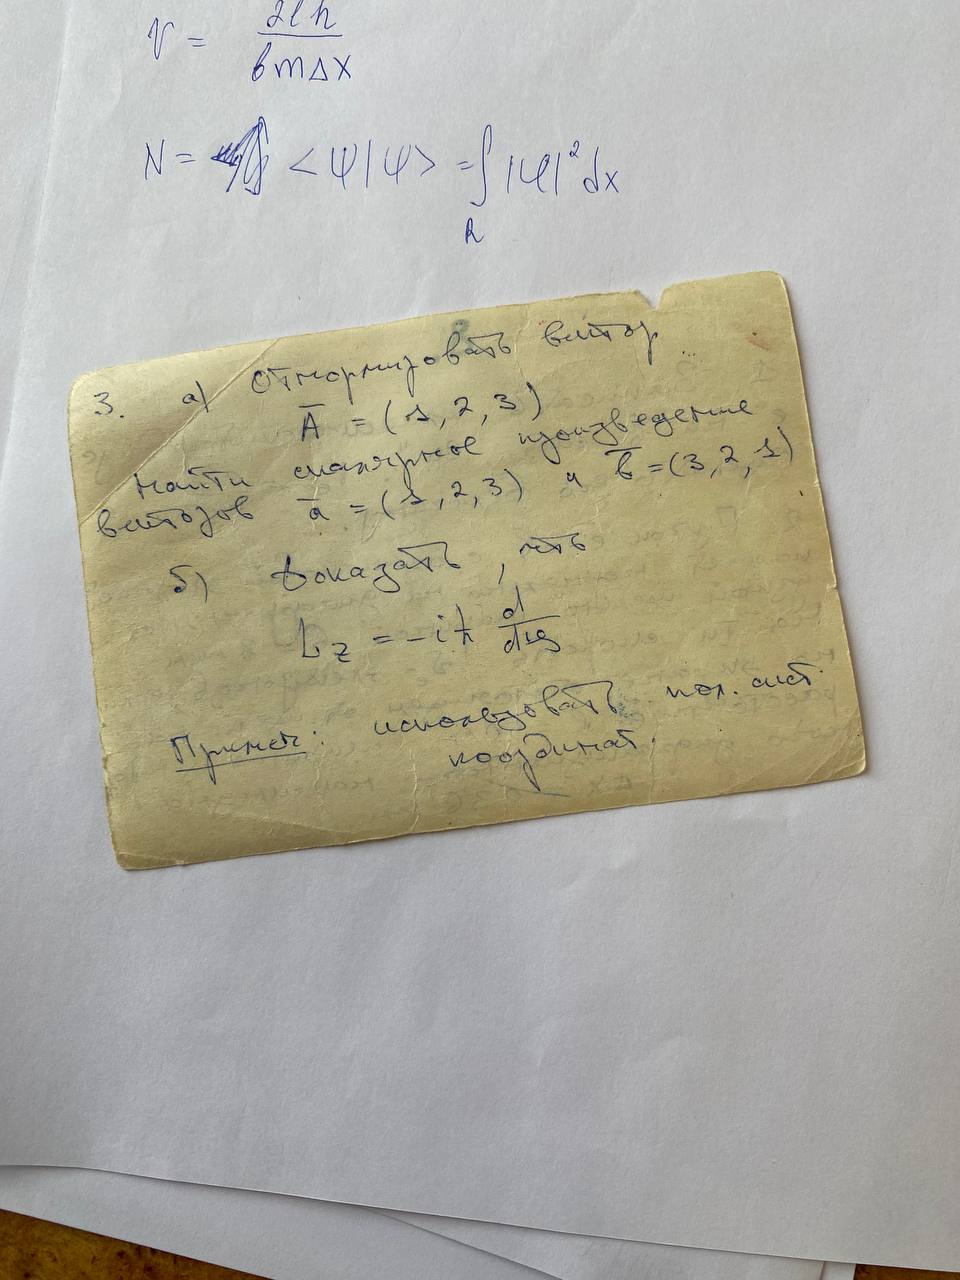 V = 2lh / bmΔx
N = <Ψ|Ψ> = ∫ |Ψ|² dx
R
3. а) Отнормировать вектор
Ā = (1, 2, 3)
Найти скалярное произведение
векторов ā = (1, 2, 3) и b̄ = (3, 2, 1)
б) Доказать, что
L_z = -iħ d/dφ
Примеч: использовать пол. сист.
координат.